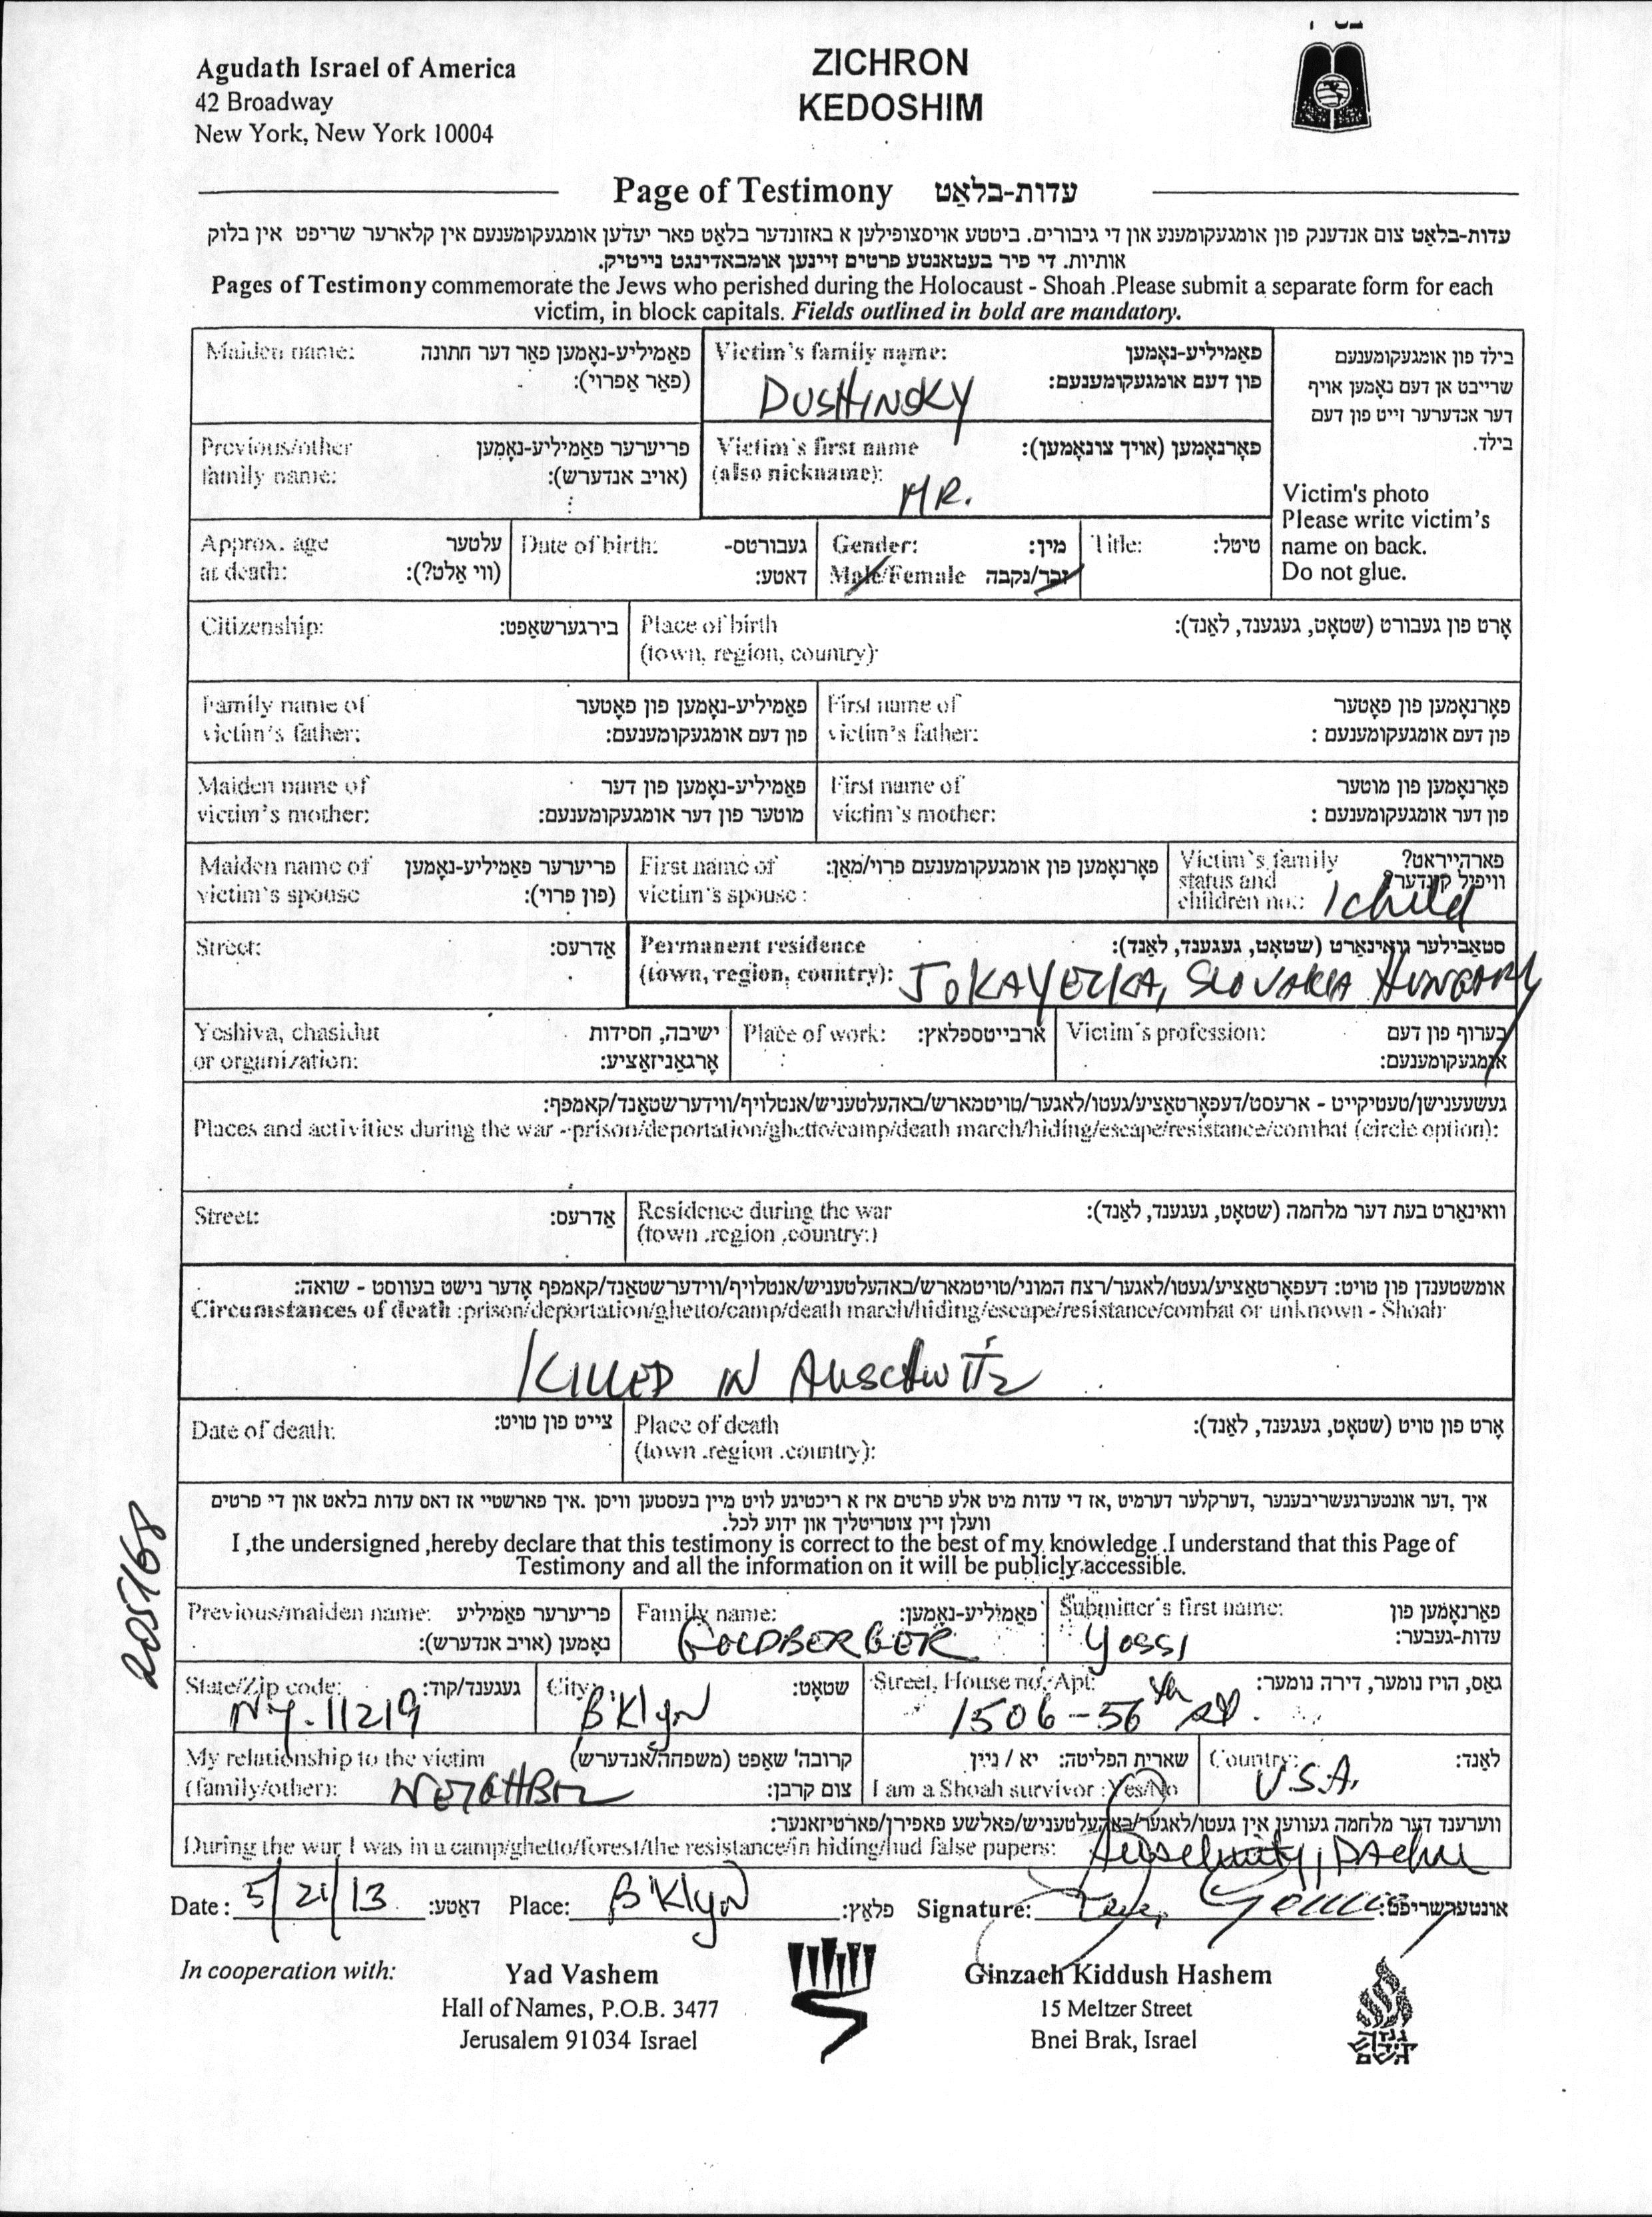 Agudath Israel of America
42 Broadway
New York, New York 10004
ZICHRON
KEDOSHIM
Page of Testimony עדות-בלאַט
עדות-בלאַט צום אנדענק פון אומגעקומענע און די גיבורים. ביטטע אויסצופילען א באזונדער בלאַט פאר יעדען אומגעקומענעם אין קלארער שריפט אין בלוק
אותיות. די פיר בעטאנטע פרטים זיינען אומבאדינגט נייטיק.
Pages of Testimony commemorate the Jews who perished during the Holocaust - Shoah .Please submit a separate form for each
victim, in block capitals. Fields outlined in bold are mandatory.
Maiden name: פאַמיליע-נאָמען פאַר דער חתונה
(פאַר אַפרוי):
Victim's family name: פאַמיליע-נאָמען
פון דעם אומגעקומענעם:
DUSHINSKY
בילד פון אומגעקומענעם
שרייבט אן דעם נאָמען אויף
דער אנדערער זייט פון דעם
בילד.
Victim's photo
Please write victim's
name on back.
Do not glue.
Previous/other פריערער פאַמיליע-נאָמען
family name: (אויב אנדערש):
Victim's first name פאָרנאָמען (אויך צונאָמען):
(also nickname):
MR.
Approx. age עלטער
at death: (ווי אַלט?):
Date of birth: געבורטס-
דאטע:
Gender: מין:
Male/Female זכר/נקבה
Title: טיטל:
Citizenship: בירגערשאַפט:
Place of birth אָרט פון געבורט (שטאָט, געגענד, לאַנד):
(town, region, country):
Family name of פאַמיליע-נאָמען פון פאָטער
victim's father: פון דעם אומגעקומענעם:
First name of פאָרנאָמען פון פאָטער
victim's father: פון דעם אומגעקומענעם :
Maiden name of פאַמיליע-נאָמען פון דער
victim's mother: מוטער פון דער אומגעקומענעם:
First name of פאָרנאָמען פון מוטער
victim's mother: פון דער אומגעקומענעם :
Maiden name of פריערער פאַמיליע-נאָמען
victim's spouse (פון פרוי):
First name of פאָרנאָמען פון אומגעקומענעם פרוי/מאַן:
victim's spouse :
Victim's family פארהייראט?
status and וויפיל קינדער?
children no.: 1 child
Street: אַדרעס:
Permanent residence סטאַבילער וואוינאָרט (שטאָט, געגענד, לאַנד):
(town, region, country):
SLOVAKIA HUNGARY
Yeshiva, chasidut ישיבה, חסידות
or organization: אָרגאַניזאַציע:
Place of work: ארבייטספלאַץ:
Victim's profession: בערוף פון דעם
אומגעקומענעם:
געשעענישן/טעטיקייט - ארעסט/דעפאָרטאַציע/געטו/לאגער/טויטמארש/באהעלטעניש/אנטלויף/ווידערשטאַנד/קאמפף:
Places and activities during the war -prison/deportation/ghetto/camp/death march/hiding/escape/resistance/combat (circle option):
Street: אַדרעס:
Residence during the war וואינאָרט בעת דער מלחמה (שטאָט, געגענד, לאַנד):
(town .region .country:)
אומשטענדן פון טויט: דעפאָרטאַציע/געטו/לאגער/רצח המוני/טויטמארש/באהעלטעניש/אנטלויף/ווידערשטאַנד/קאמפף אָדער נישט בעוווסט - שואה:
Circumstances of death :prison/deportation/ghetto/camp/death march/hiding/escape/resistance/combat or unknown - Shoah:
KILLED IN AUSCHWITZ
Date of death: צייט פון טויט:
Place of death אָרט פון טויט (שטאָט, געגענד, לאַנד):
(town .region .country):
איך ,דער אונטערגעשריבענער ,דערקלער דערמיט ,אז די עדות מיט אלע פרטים איז א ריכטיגע לויט מיין בעסטען וויסן .איך פארשטיי אז דאס עדות בלאט און די פרטים
וועלן זיין צוטריטליך און ידוע לכל.
I ,the undersigned ,hereby declare that this testimony is correct to the best of my knowledge .I understand that this Page of
Testimony and all the information on it will be publicly accessible.
205168
Previous/maiden name: פריערער פאַמיליע
נאָמען (אויב אנדערש):
Family name: פאַמיליע-נאָמען:
GOLDBERGER
Submitter's first name: פאָרנאָמען פון
עדות-געבער:
YOSSI
State/Zip code: געגענד/קוד:
NY. 11219
City: שטאָט:
B'Klyn
Street, House no. Apt: גאַס, הויז נומער, דירה נומער:
1506-56th St.
My relationship to the victim קרובה' שאַפט (משפחה/אנדערש)
(family/other): צום קרבן:
NEIGHBOR
שארית הפליטה: יא / ניין
I am a Shoah survivor : Yes/No
Country: לאַנד:
U.S.A.
ווערענד דער מלחמה געווען אין געטו/לאגער/באַהעלטעניש/פאלשע פאפירן/פארטיזאנער:
During the war I was in a camp/ghetto/forest/the resistance/in hiding/had false papers: Auschwitz, Dachu
Date: 5/21/13 דאַטע: Place: B'Klyn פלאַץ: Signature: אונטערשריפט:
In cooperation with:
Yad Vashem
Hall of Names, P.O.B. 3477
Jerusalem 91034 Israel
Ginzach Kiddush Hashem
15 Meltzer Street
Bnei Brak, Israel
גנזך
קידוש
השם